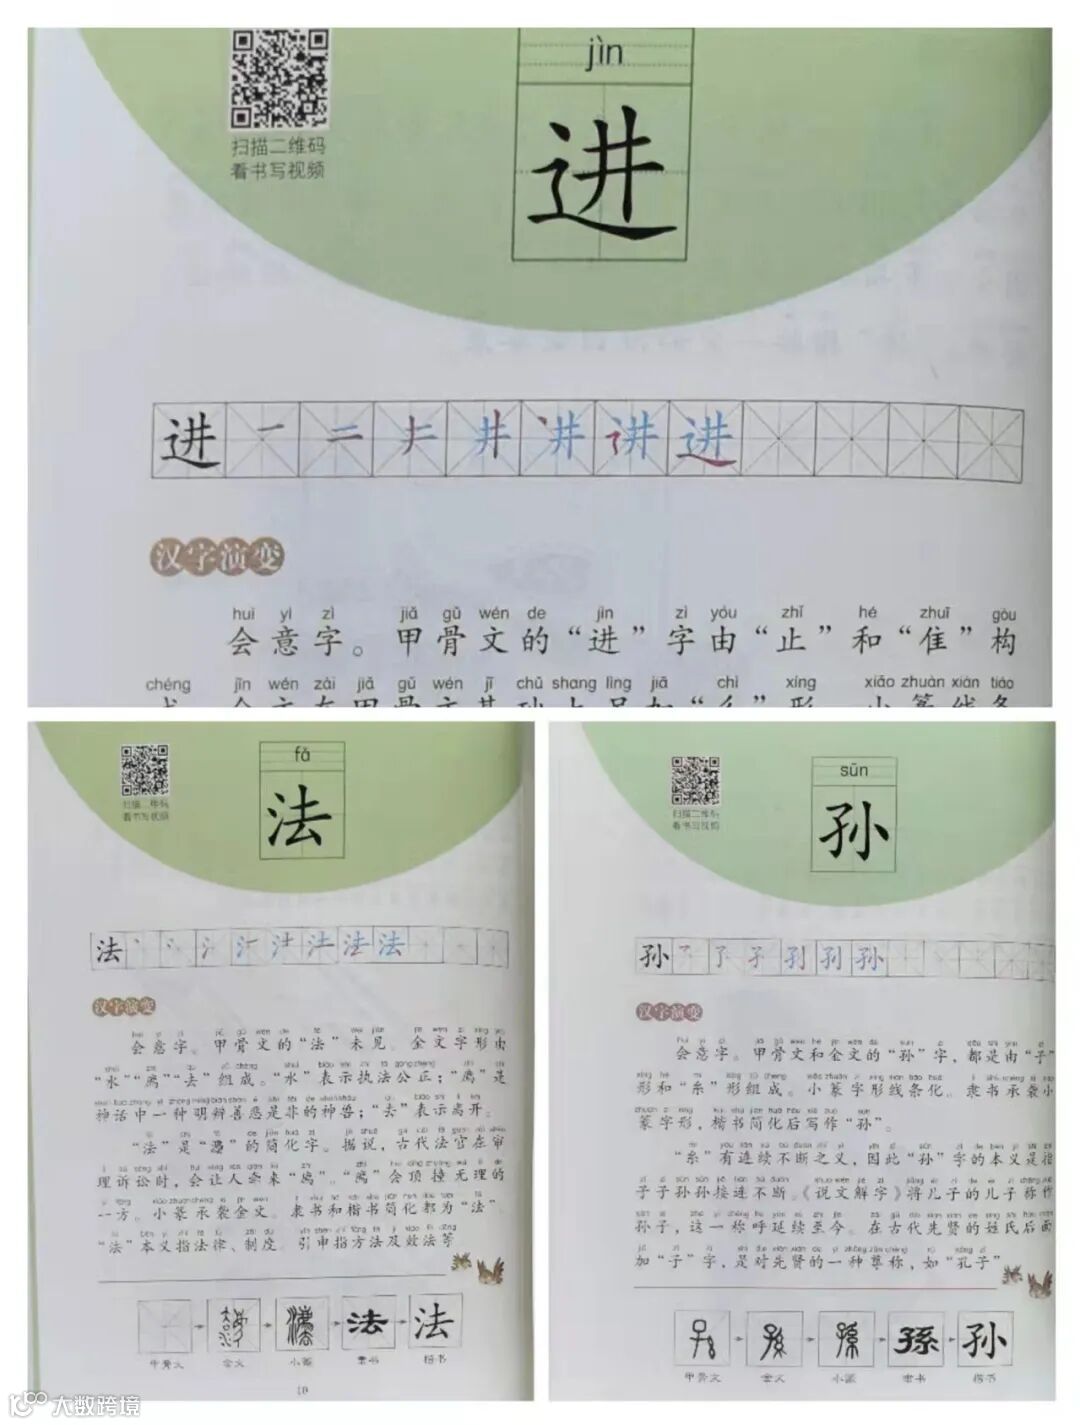 jìn
进
扫描二维码
看书写视频
进
汉字演变
huì yì zì jiǎ gǔ wén de jìn zì yóu zhǐ hé zhuī gòu
会意字。甲骨文的“进”字由“止”和“隹”构
chéng jīn wén zài jiǎ gǔ wén jī chǔ shang lìng jiā chì xíng xiǎo zhuàn xiàn tiáo
fǎ
法
扫描二维码
看书写视频
法
汉字演变
会意字。甲骨文的“法”未见。金文字形由
“水”“廌”“去”组成。“水”表示执法公正；“廌”是
神话中一种明辨善恶是非的神兽；“去”表示离开。
“法”是“灋”的简化字。据说，古代法官在审
理诉讼时，会让人牵来“廌”。“廌”会顶撞无理的
一方。小篆承袭金文。隶书和楷书简化都为“法”。
“法”本义指法律、制度。引申指方法及效法等
法 法
甲骨文 金文 小篆 隶书 楷书
10
sūn
孙
扫描二维码
看书写视频
孙
汉字演变
会意字。甲骨文和金文的“孙”字，都是由“子”
形和“糸”形组成。小篆字形线条化。隶书承袭小
篆字形，楷书简化后写作“孙”。
“糸”有连续不断之义，因此“孙”字的本义是指
子子孙孙接连不断。《说文解字》将儿子的儿子称作
孙子，这一称呼延续至今。在古代先贤的姓氏后面
加“子”字，是对先贤的一种尊称，如“孔子”
孫 孙
甲骨文 金文 小篆 隶书 楷书
大数跨境